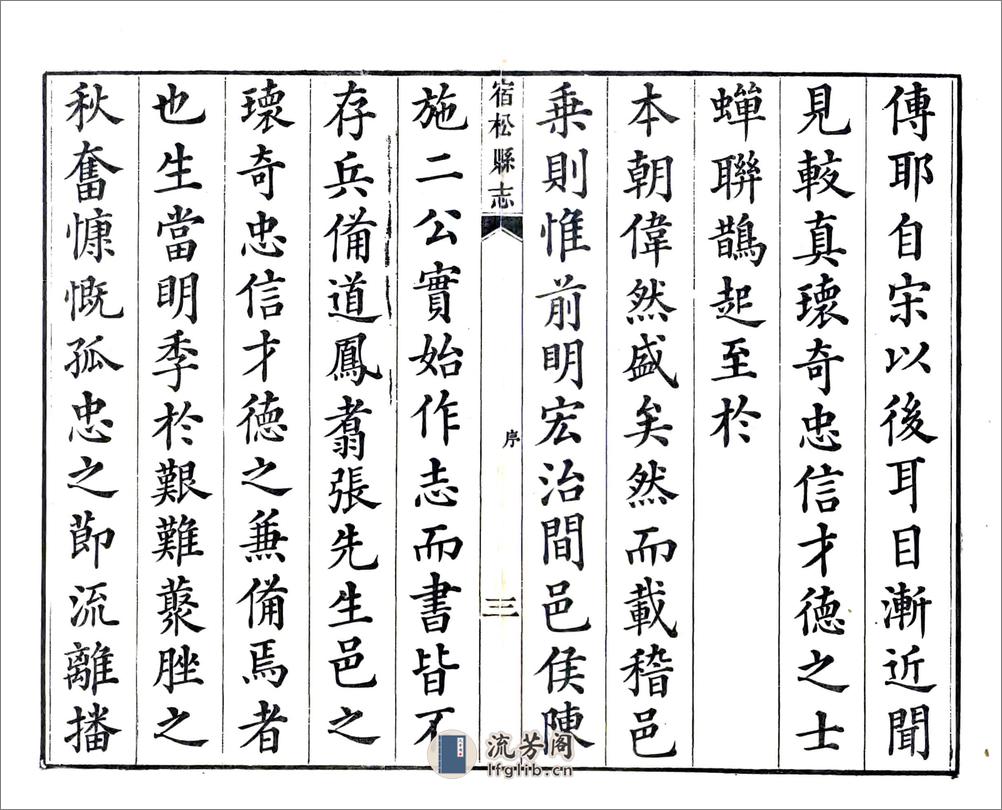 傳耶自宋以後耳目漸近聞
見較真瓌奇忠信才德之士
蟬聯鵲起至於
本朝偉然盛矣然而載稽邑
乗則惟前明宏治間邑侯陳
宿松縣志
序
三
施二公實始作志而書皆不
存兵備道鳳翥張先生邑之
瓌奇忠信才德之兼備焉者
也生當明季於艱難蕞脞之
秋奮慷慨孤忠之節流離播
流芳阁
lfglib.cn